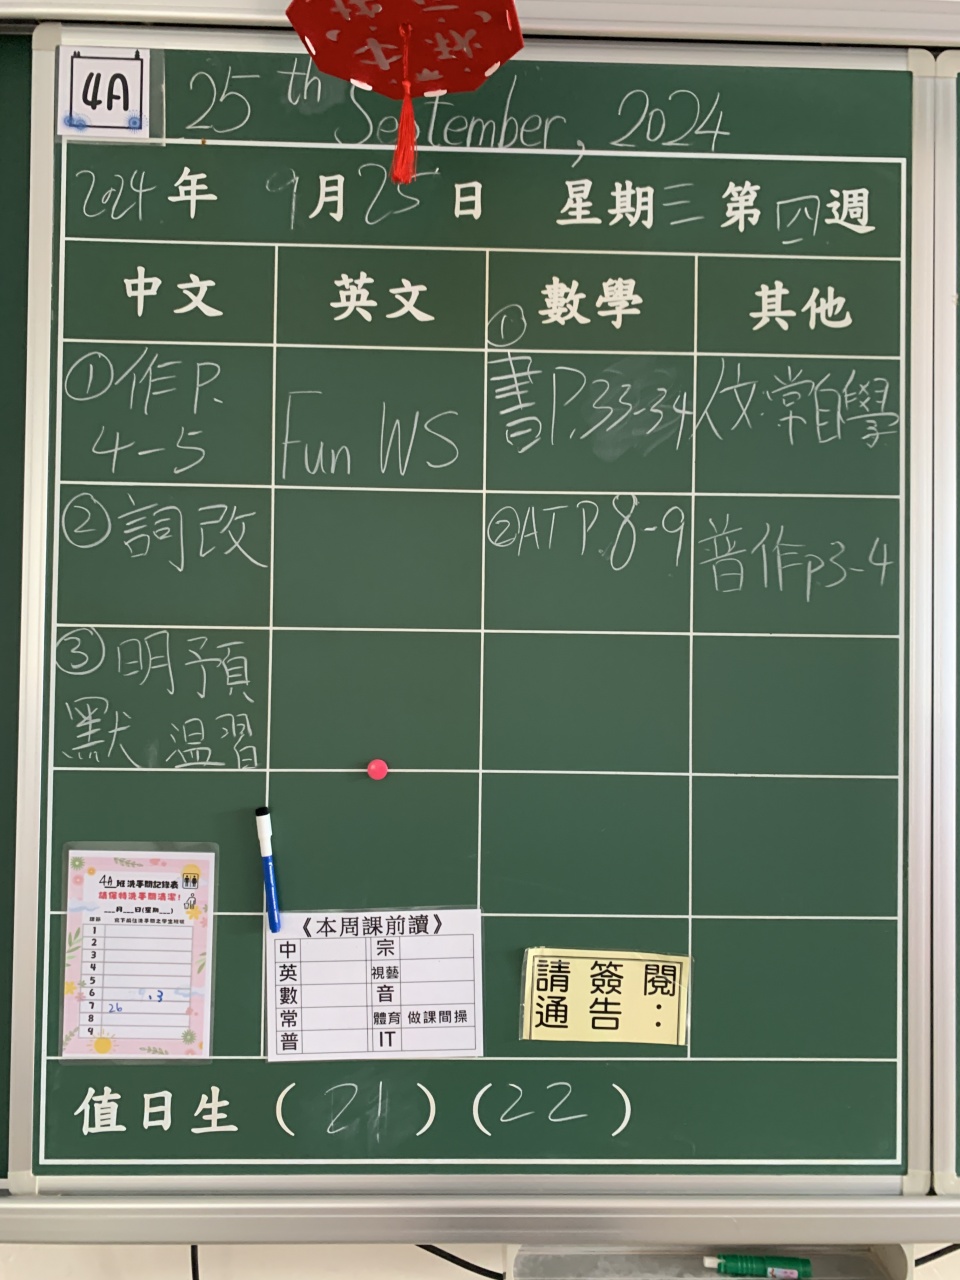 4A
25th September, 2024
2024年 9月25日 星期三 第四週
中文 英文 數學 其他
①作P.
4-5
Fun WS
①
書P.33-34
常自學
②詞改
②AT P.8-9
普作p3-4
③明預
默 温習
4A班洗手間記錄表
請保持洗手間清潔!
___月___日(星期___)
1
2
3
4
5
6
7 26
8
9
《本周課前讀》
中 宗
英 視藝
數 音
常 體育 做課間操
普 IT
請簽閱
通告：
值日生 ( 21 ) ( 22 )